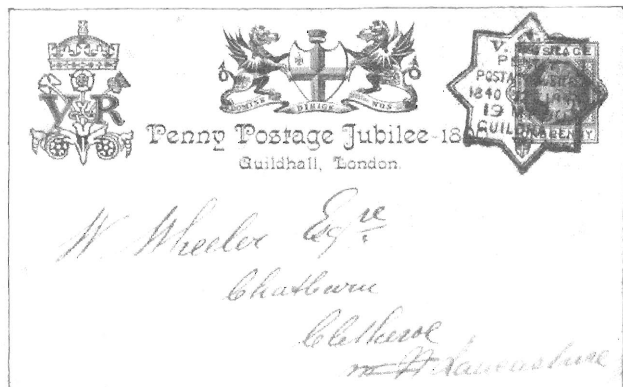 V R
DOMINE DIRIGE NOS
Penny Postage Jubilee-18
Guildhall, London.
V.
POSTAGE
POSTA
1840
19
GUILD
PENNY
W Wheeler Esqre
Chatburn
Clitheroe
Lancashire